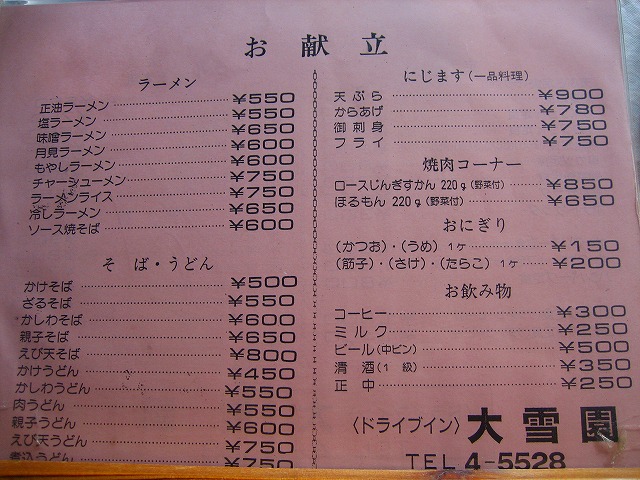 お献立
ラーメン
正油ラーメン ¥550
塩ラーメン ¥550
味噌ラーメン ¥650
月見ラーメン ¥600
もやしラーメン ¥600
チャーシューメン ¥750
ラーメンライス ¥750
冷しラーメン ¥650
ソース焼そば ¥600
そば・うどん
かけそば ¥500
ざるそば ¥550
かしわそば ¥600
親子そば ¥650
えび天そば ¥800
かけうどん ¥450
かしわうどん ¥550
肉うどん ¥550
親子うどん ¥600
えび天うどん ¥750
煮込うどん ¥750
にじます(一品料理)
天ぷら ¥900
からあげ ¥780
御刺身 ¥750
フライ ¥750
焼肉コーナー
ロースじんぎすかん 220g(野菜付) ¥850
ほるもん 220g(野菜付) ¥650
おにぎり
(かつお)・(うめ) 1ヶ ¥150
(筋子)・(さけ)・(たらこ) 1ヶ ¥200
お飲み物
コーヒー ¥300
ミルク ¥250
ビール(中ビン) ¥500
清酒(1級) ¥350
正中 ¥250
〈ドライブイン〉大雪園
TEL 4-5528